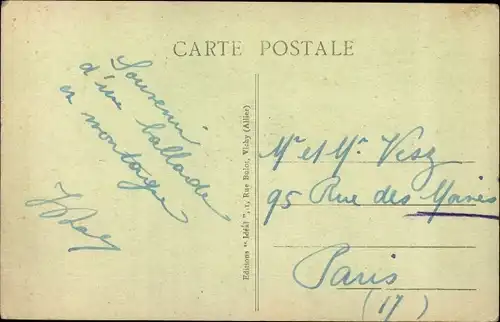 CARTE POSTALE
Souvenir
d'une ballade
en montagne
Editions "Idéal", Rue Bulot, Vichy (Allier)
Mr et Mme
95 Rue des
Paris
(17)